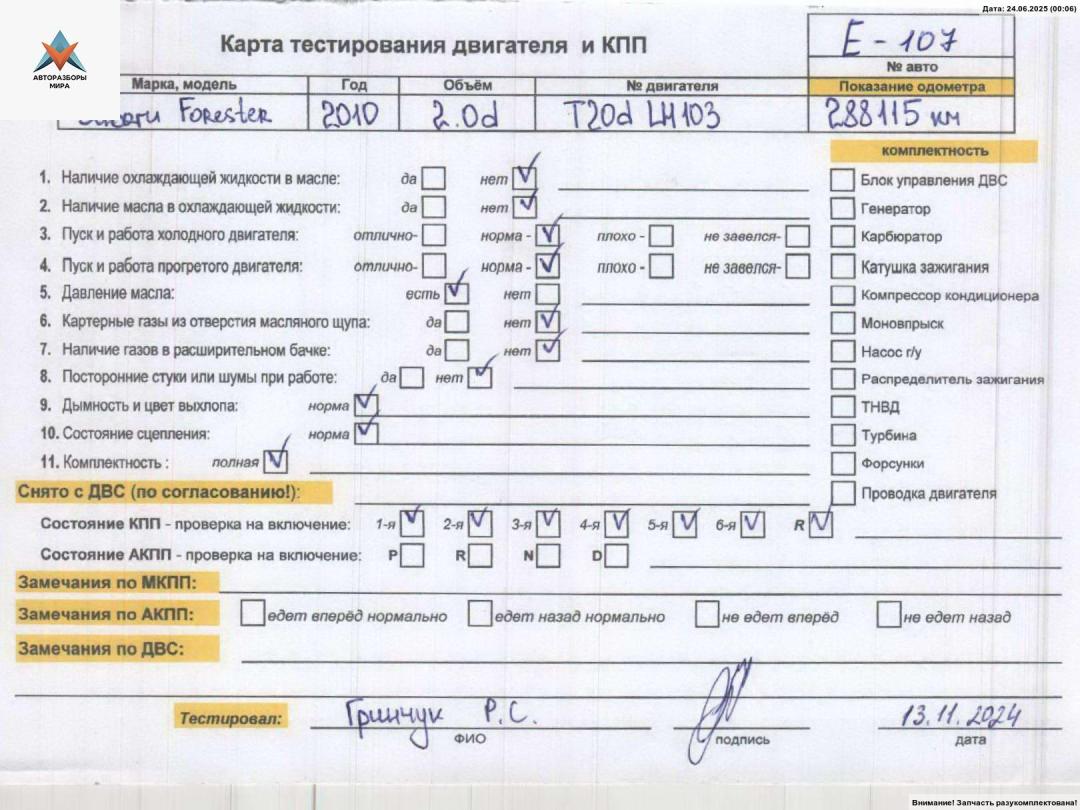 Дата: 24.06.2025 (00:06)
АВТОРАЗБОРЫ
МИРА
Карта тестирования двигателя и КПП
E - 107
№ авто
Марка, модель Год Объём № двигателя Показание одометра
Subaru Forester 2010 2.0d T20d LH103 288115 км
комплектность
1. Наличие охлаждающей жидкости в масле: да нет Блок управления ДВС
2. Наличие масла в охлаждающей жидкости: да нет Генератор
3. Пуск и работа холодного двигателя: отлично- норма - плохо - не завелся- Карбюратор
4. Пуск и работа прогретого двигателя: отлично- норма - плохо - не завелся- Катушка зажигания
5. Давление масла: есть нет Компрессор кондиционера
6. Картерные газы из отверстия масляного щупа: да нет Моновпрыск
7. Наличие газов в расширительном бачке: да нет Насос г/у
8. Посторонние стуки или шумы при работе: да нет Распределитель зажигания
9. Дымность и цвет выхлопа: норма ТНВД
10. Состояние сцепления: норма Турбина
11. Комплектность : полная Форсунки
Снято с ДВС (по согласованию!): Проводка двигателя
Состояние КПП - проверка на включение: 1-я 2-я 3-я 4-я 5-я 6-я R
Состояние АКПП - проверка на включение: P R N D
Замечания по МКПП:
Замечания по АКПП: едет вперёд нормально едет назад нормально не едет вперёд не едет назад
Замечания по ДВС:
Тестировал: Гринчук Р.С. 13.11.2024
ФИО подпись дата
Внимание! Запчасть разукомплектована!